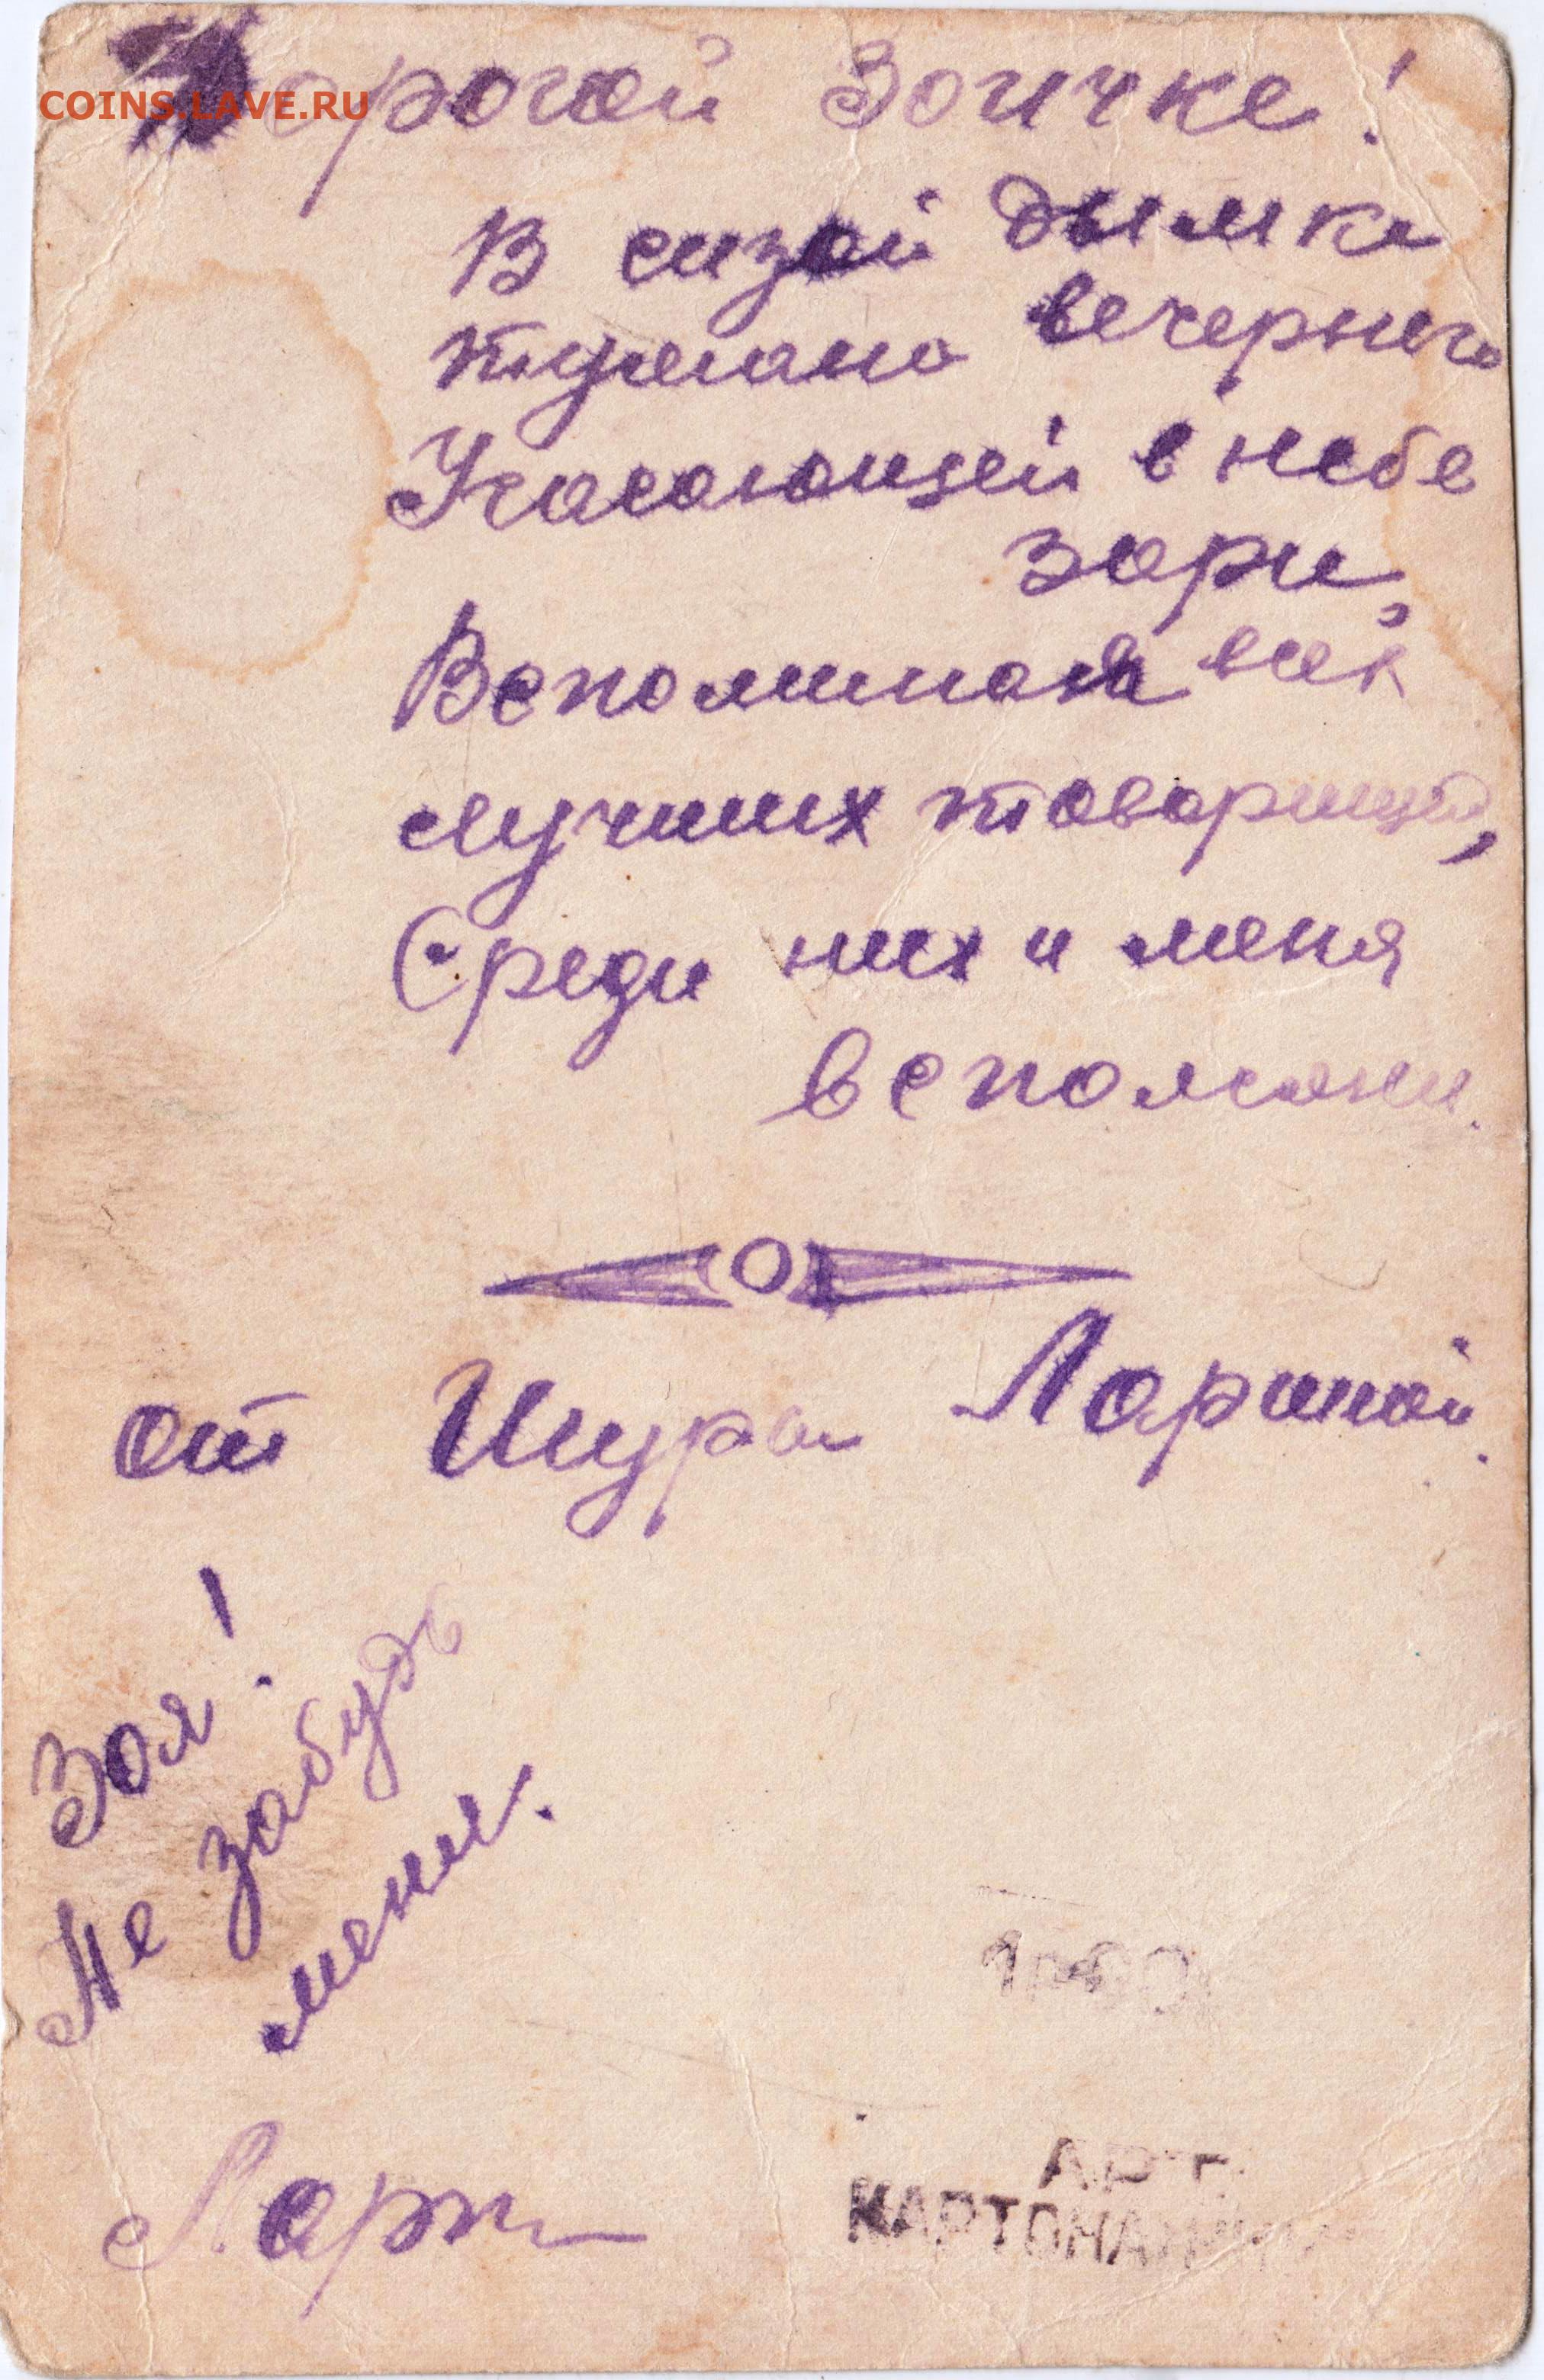 COINS.LAVE.RU
Дорогой Зоичке!
В сизой дымке
тумана вечернего
Угасающей в небе
зари,
Вспоминая всех
лучших товарищей,
Среди них и меня
вспомяни.
от Шуры Лариной.
Зоя!
Не забудь
меня.
Лари
АРТ.